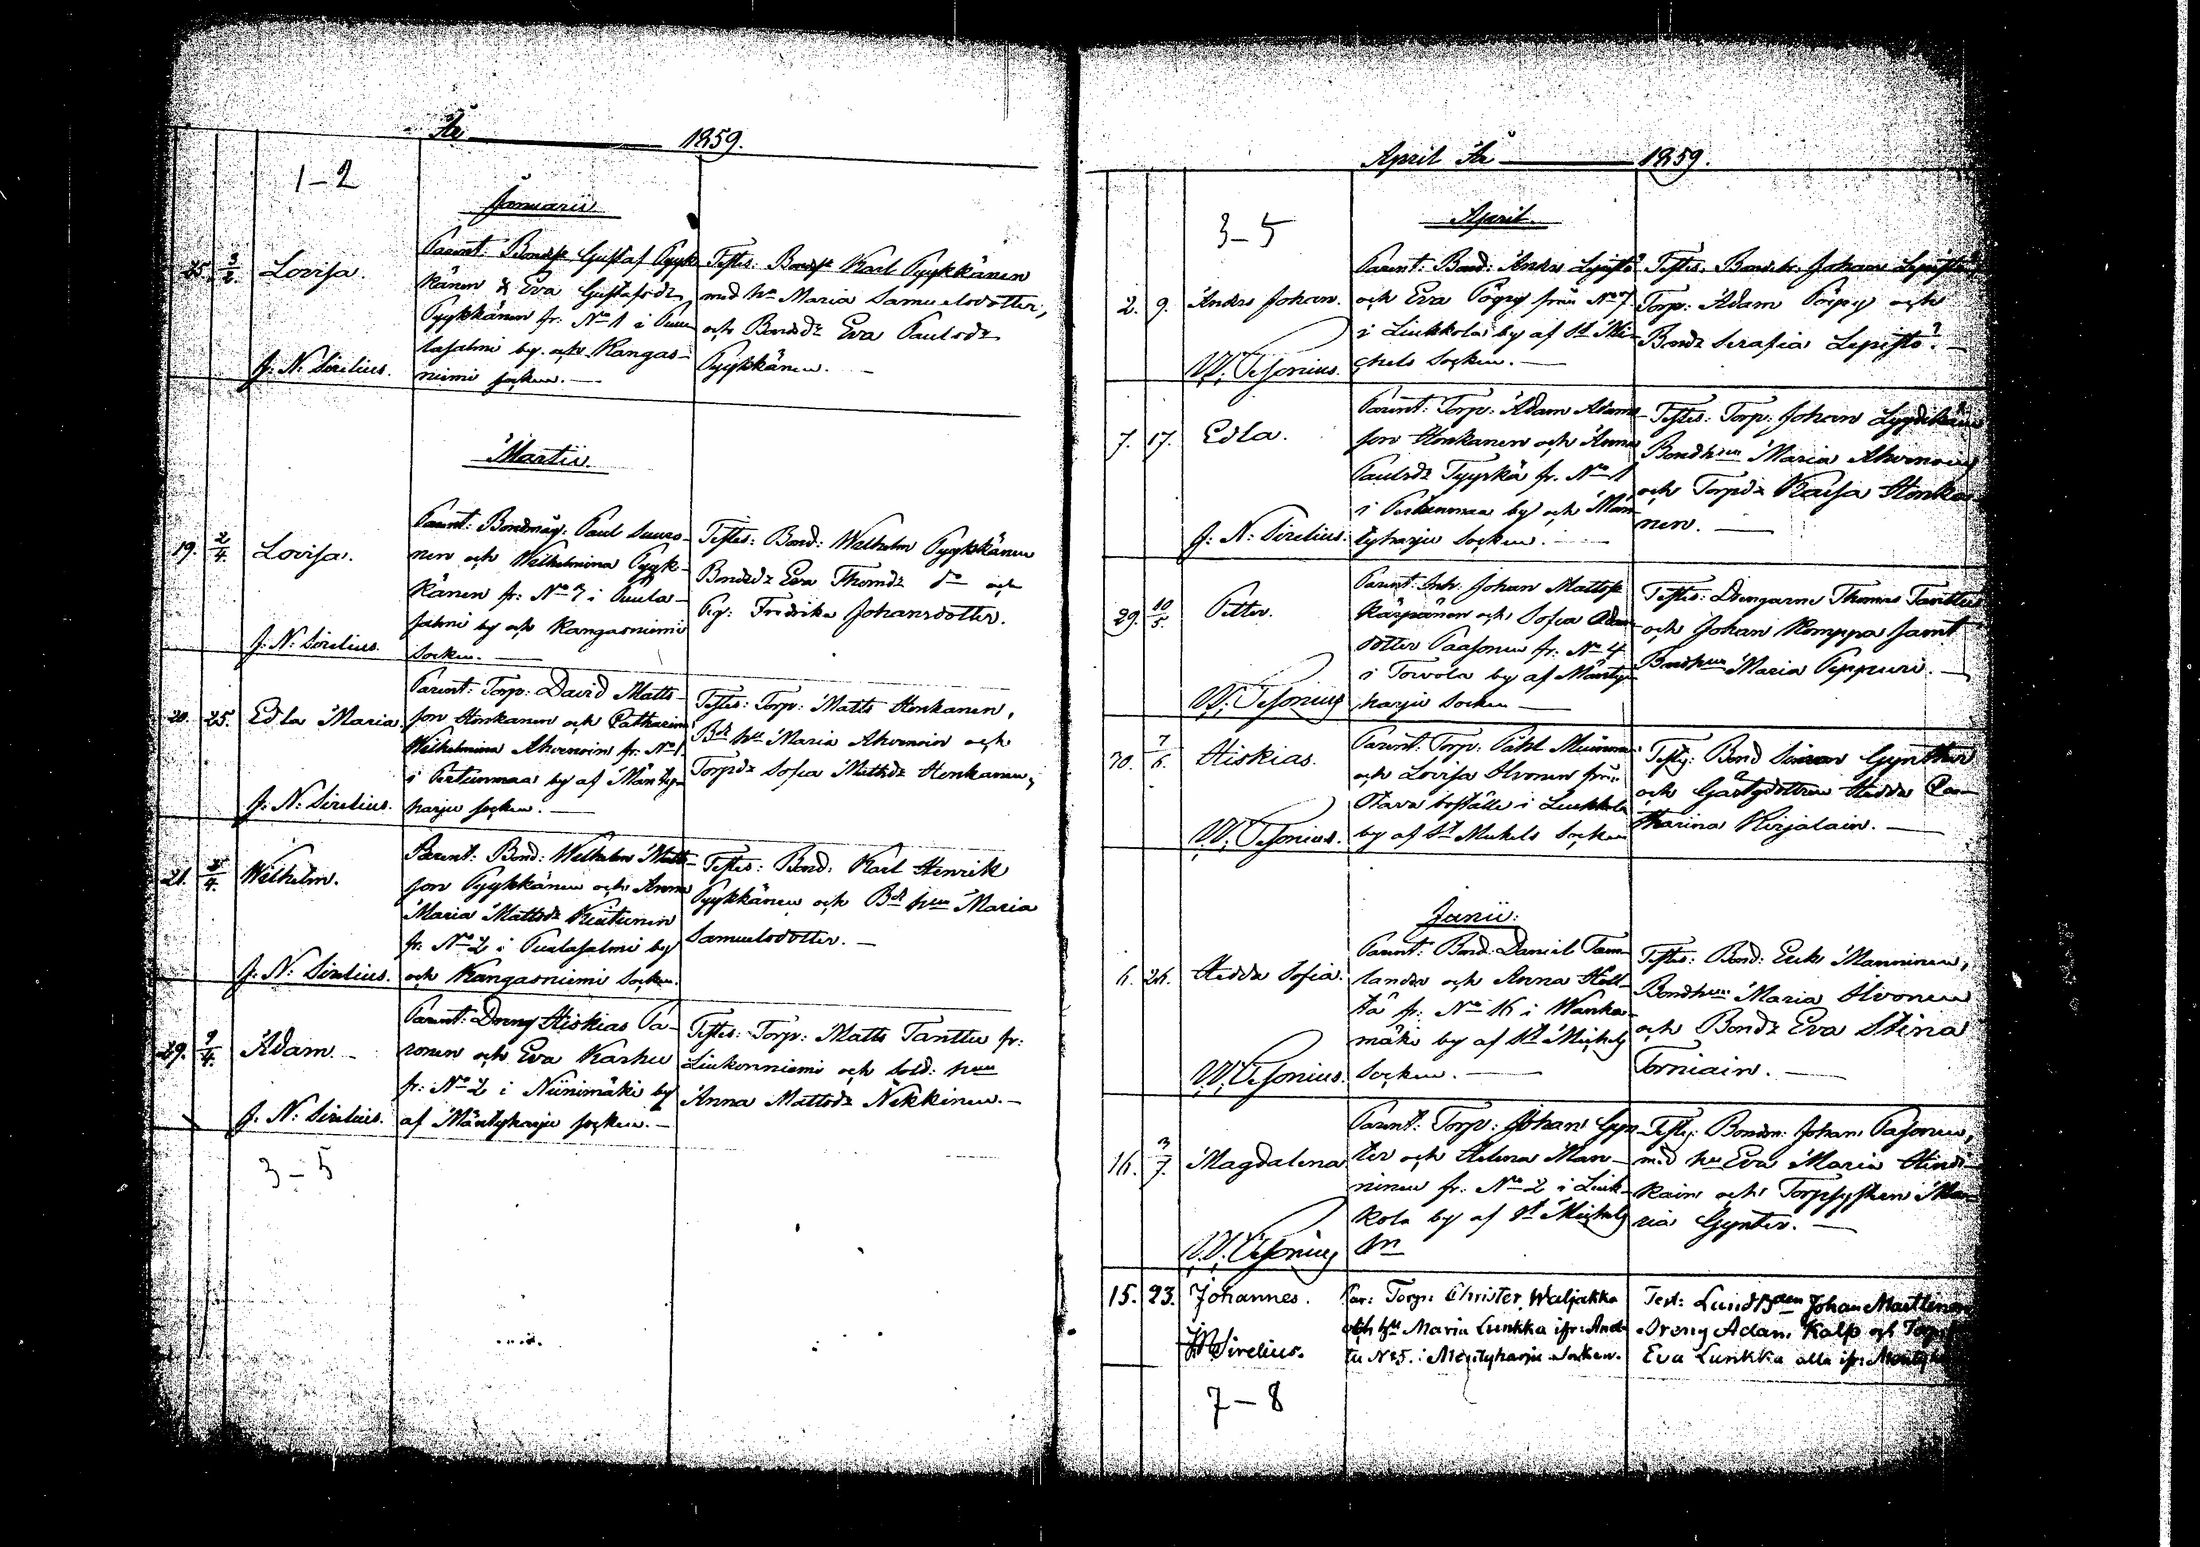 År 1859.
1–2
Januarii.
25. 3/2. Lovisa.
Parent: Bondes. Gustaf Pyyk-
känen & Eva Gustafsdr
Pyykkänen fr: No 1 i Puula
salmi by och Kangas-
niemi socken. —
Testes: Bondes. Karl Pyykkänen
med hu Maria Samuelsdotter,
och Bondedr Eva Paulsdr
Pyykkänen. —
J. N. Sirelius.
Martii.
19. 2/4. Lovisa.
Parent: Bondmåg. Paul Suuro-
nen och Wilhelmina Pyyk-
känen fr: No 7 i Puula-
salmi by och Kangasniemi
Socken. —
Testes: Bond: Wilhelm Pyykkänen
Bondedr Eva Thomdr do och
Pig: Fredrika Johansdotter.
J. N. Sirelius.
20. 25. Edla Maria.
Parent: Torp: David Matts-
son Honkanen och Catharina
Wilhelmina Ahvenain fr: No 1
i Pertunmaa by af Mänty-
harju socken. —
Testes: Torp: Matts Honkanen,
Bd hu Maria Ahvenain och
Torpdr Sofia Mattsdr Honkanen,
J. N. Sirelius.
21. 4. Wilhelm.
Parent: Bond: Wilhelm Matts-
son Pyykkänen och Anna
Maria Mattsdr Kiutunen
fr: No 2 i Puulasalmi by
och Kangasniemi Socken.
Testes: Bond: Karl Henrik
Pyykkänen och Bd hun Maria
Samuelsdotter. —
J. N. Sirelius.
29. 9/4. Adam.
Parent: Dreng Hiskias Pa-
ronen och Eva Karhu
fr: No 2 i Niinimäki by
af Mäntyharju socken. —
Testes: Torp: Matts Tanttu fr:
Liukonniemi och Sold: hun
Anna Mattsdr Nekkinen. —
J. N. Sirelius.
3–5
April År 1859.
3–5
April.
2. 9. Anders Johan.
Parent: Bond: Anders Lepistö
och Eva Pöyry från No 7
i Liukkola by af St Mi-
chels Socken. —
Testes: Bond: Johan Lepistö
Torp: Adam Pöyry och
Bondr Serafia Lepistö. —
W. Cesonius.
7. 17. Edla.
Parent: Torp: Adam Adams-
son Honkanen och Anna
Paulsdr Tyyskä fr. No 1
i Pertunmaa by och Män
tyharju Socken. —
Testes: Torp: Johan Lyydikäin
Bondhun Maria Ahvenain
och Torpdr Kaisa Honka-
nen. —
J. N. Sirelius.
29. 10/5. Petter.
Parent: Inh. Johan Mattss
Kärpänen och Sofia Adam
dotter Paasonen fr: No 4
i Toivola by af Mänty-
harju Socken —
Testes: Drengarne Thomas Tanttu
och Johan Komppa samt
Bondhun Maria Peppuri. —
W. Cesonius
30. 7/6. Hiskias.
Parent: Torp: Påhl Mu
och Lovisa Ilvonen från
Otava boställe i Liukkola
by af St Mickels Socken
Testes: Bond Simon Gynther
och Gästgdottren Hedda Ca-
tharina Kirjalain. —
W. Cesonius.
Junii:
6. 26. Hedda Sofia.
Parent: Bond: Daniel Tam-
lander och Anna Holt-
ta fr: No 16 i Wanha-
mäki by af St Michels
Socken. —
Testes: Bond: Erik Manninen,
Bondhun Maria Ilvonen
och Bondr Eva Stina
Torniain. —
W. Cesonius.
16. 3/7. Magdalena
Parent: Torp: Johan Gyn-
ter och Helena Man-
ninen fr: No 2 i Liuk-
kola by af St Michels
Sn
Testes: Bonden Johan Pasonen,
med hu Eva Maria Hind-
kain och Torpsystern Ma-
ria Gynter. —
W. Cesonius
15. 23. Johannes.
Par: Torp: Christer Waljakka
och hu Maria Lunkka ifr: And
tu No 5. i Mäntyharju Socken.
Test: Johan Marttinen
Dreng Adam Kalp och Torp
Eva Lunkka alla ifr: Mäntyh
J N Sirelius.
7–8